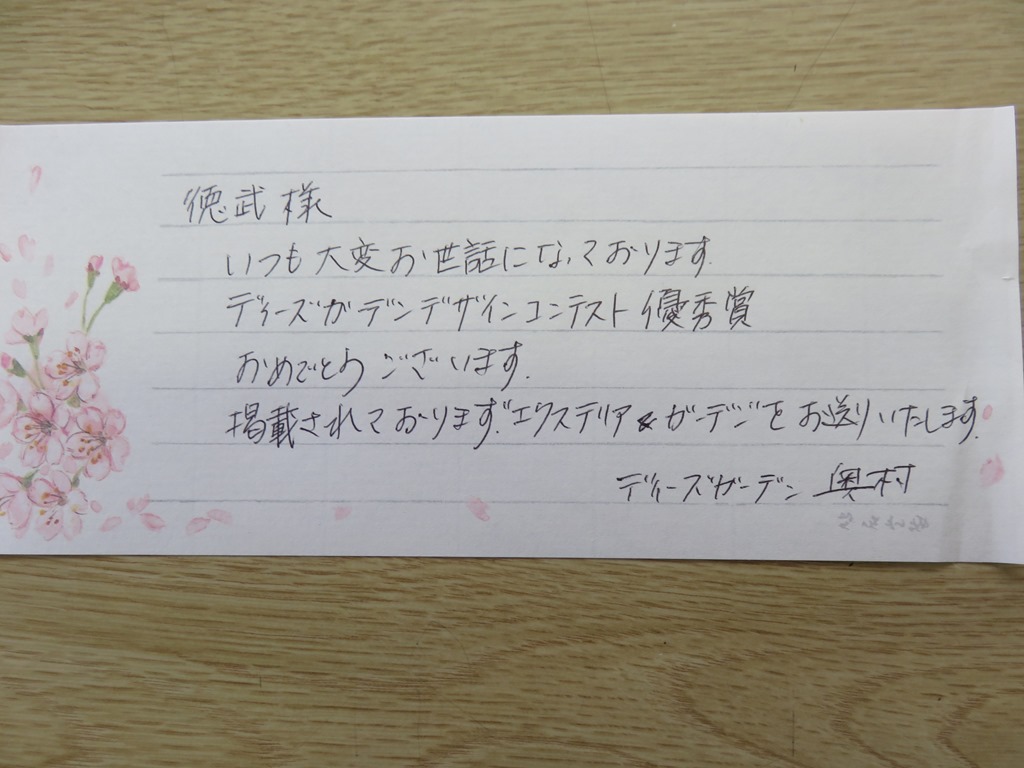 徳武様
いつも大変お世話になっております.
ディーズガーデンデザインコンテスト優秀賞
おめでとうございます.
掲載されております."エクステリア&ガーデン"をお送りいたします.
ディーズガーデン 奥村